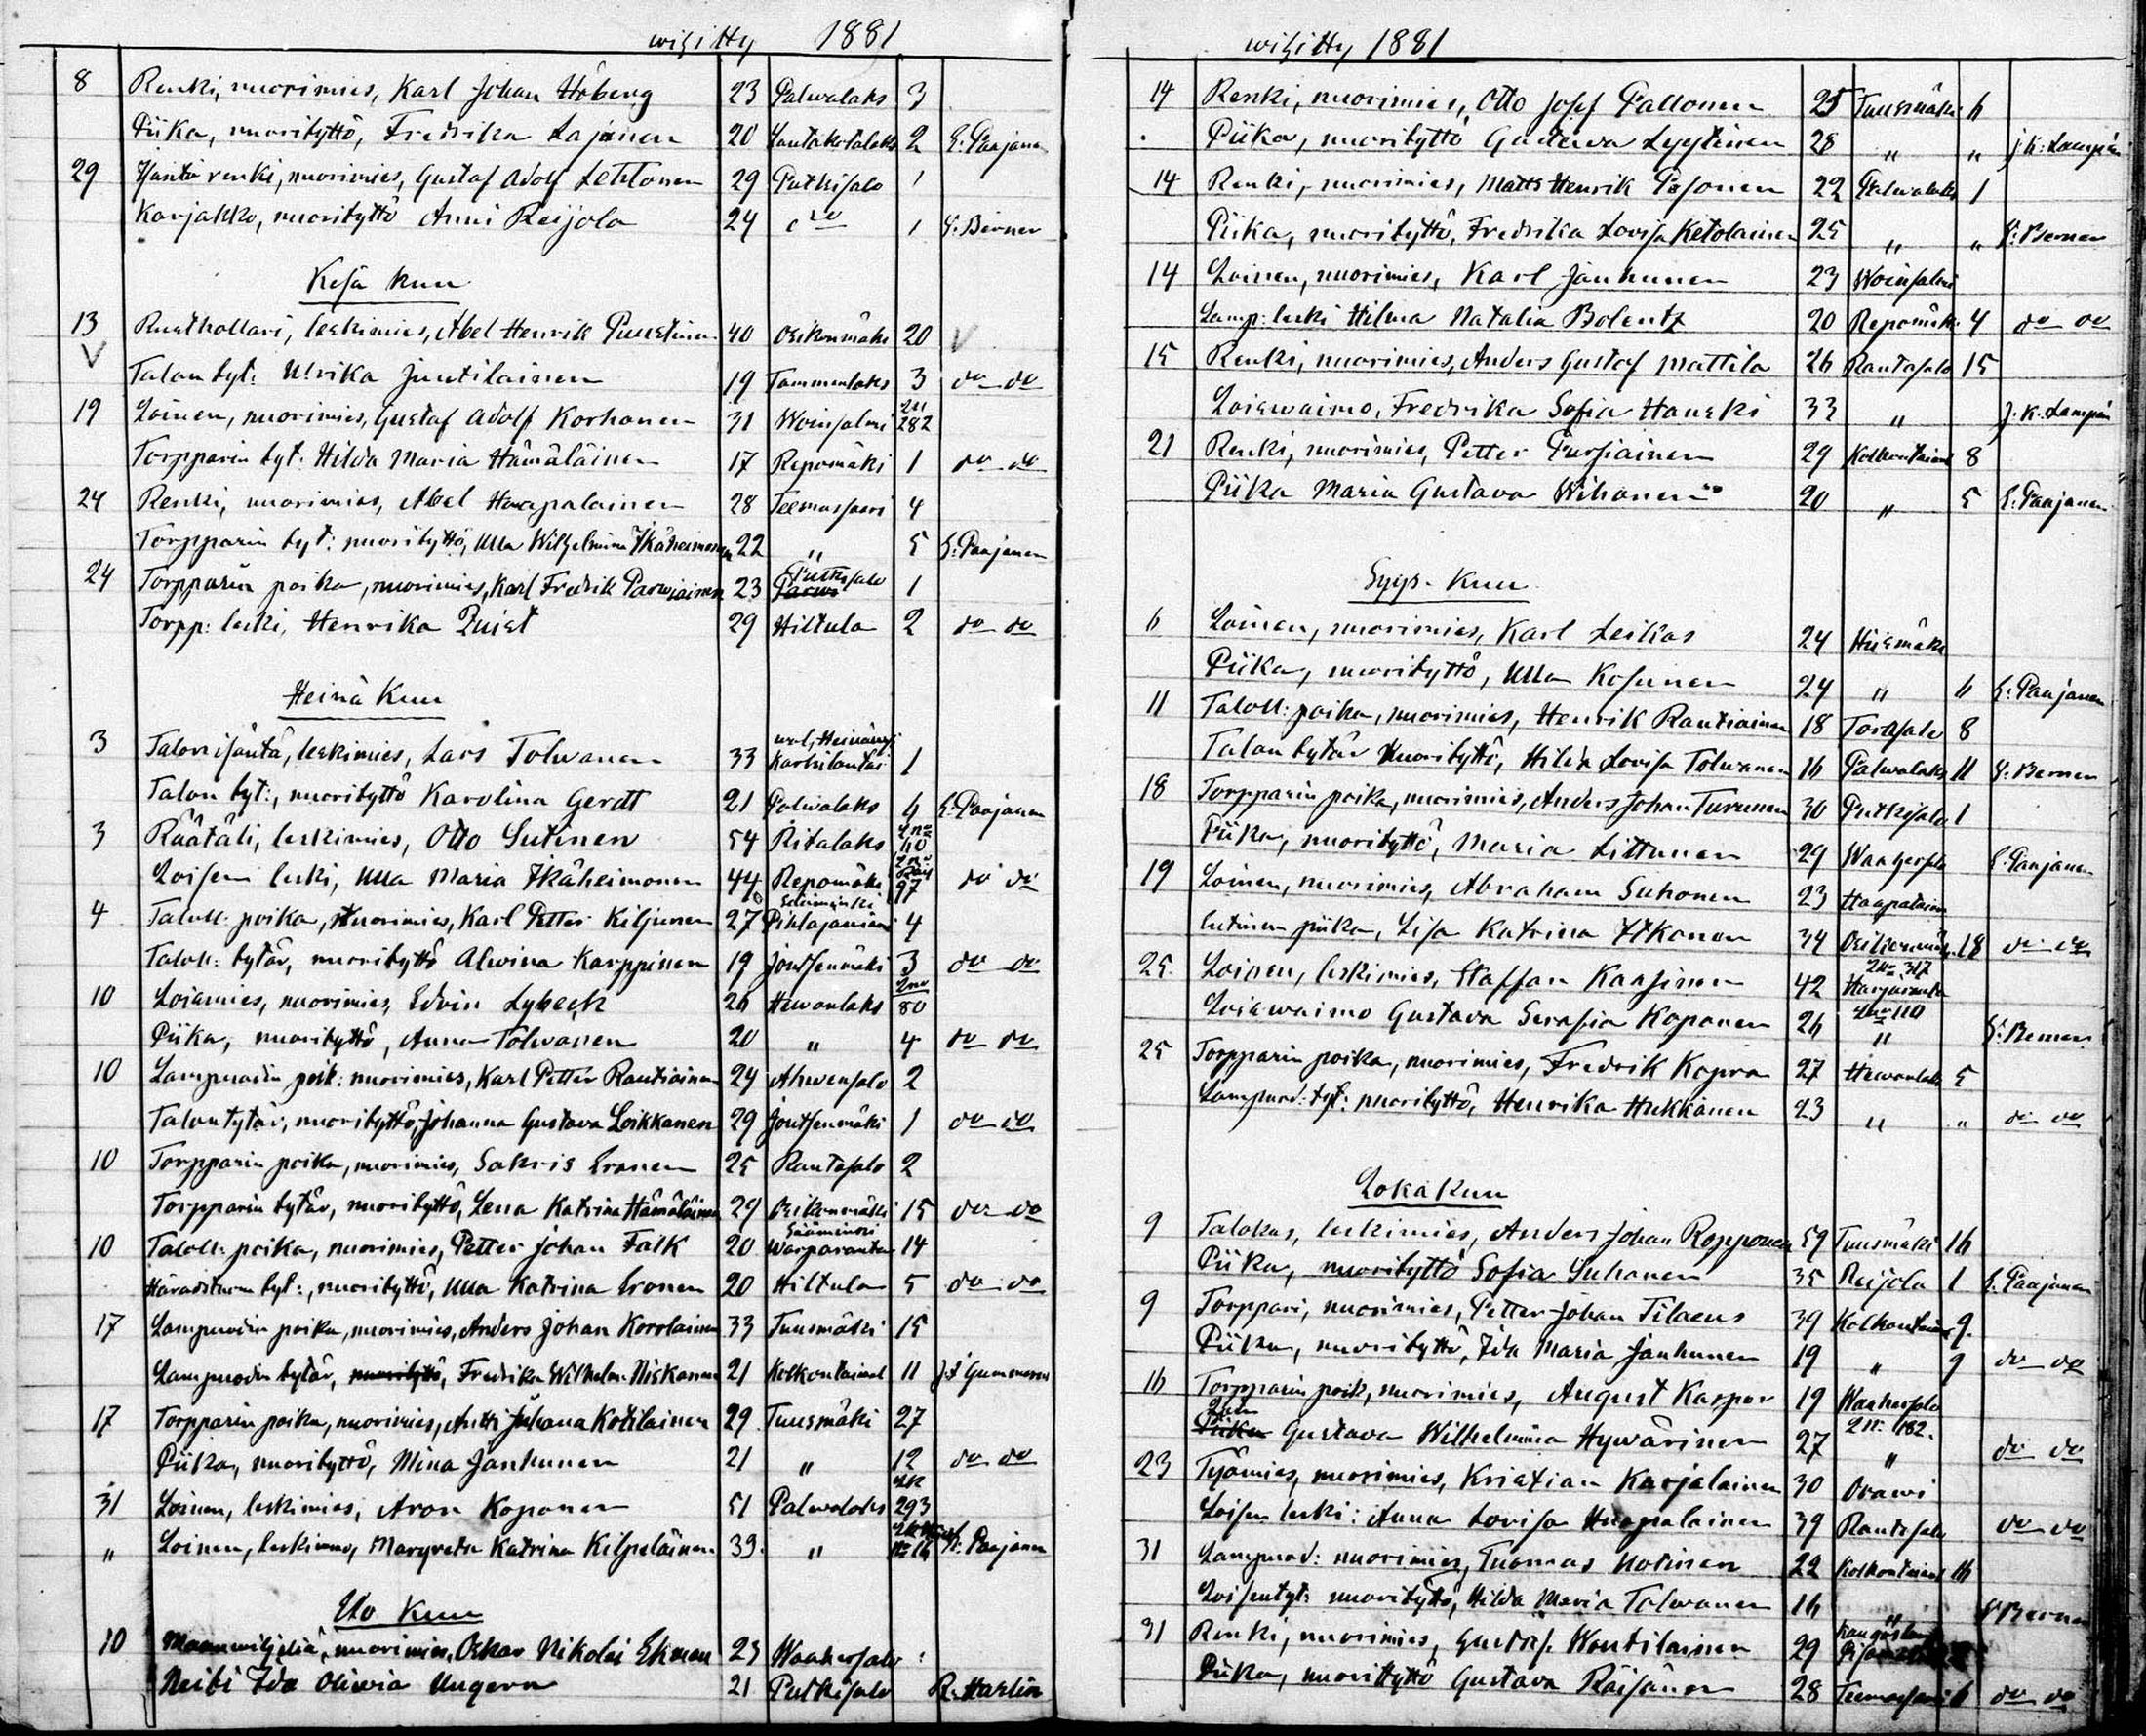 wihitty 1881
8 Renki, nuorimies, Karl Johan Höberg 23 Palwalaks 3
Piika, nuorityttö, Fredrika Lajunen 20 2 E. Paajanen
29 renki, nuorimies, Gustaf Adolf Lehtonen 29 Putkisalo 1
Karjakko, nuorityttö Anni Reijola 24 do 1 Berner
Kesä kuu
13 Rusthollari, leskimies, Abel Henrik Puustinen 40 Osikonmäki 20
Talon tyt: Ulrika Juutilainen 19 Tammenlaks 3 do do
19 Loinen, nuorimies, Gustaf Adolf Korhonen 31 Woinsalmi 282
Torpparin tyt: Hilda Maria Hämäläinen 17 Repomäki 1 do do
24 Renki, nuorimies, Abel Haapalainen 28 Teemassaari 4
Torpparin tyt: nuorityttö, Ulla Wilhelmina Ikäheimonen 22 " 5 E. Paajanen
24 Torpparin poika, nuorimies, Karl Fredrik Parwiainen 23 Putkisalo 1
Torpp: leski, Henrika Quist 29 Hiltula 2 do do
Heinä Kuu
3 Talonisäntä, leskimies, Lars Tolwanen 33 1
Talon tyt:, nuorityttö Karolina Gerdt 21 Palwalaks 6 E. Paajanen
3 Räätäli, leskimies, Otto Sutinen 54 Ritalaks
Loisen leski, Ulla Maria Ikäheimonen 44 Repomäki 97 do do
4 Taloll: poika, nuorimies, Karl Petter Kiljunen 27 Pihlajaniemi 4
Taloll: tytär, nuorityttö Alwina Karppinen 19 Joutsenmäki 3 do do
10 Loismies, nuorimies, Edvin Lybeck 26 Hewonlaks 80
Piika, nuorityttö, Anna Tolwanen 20 " 4 do do
10 Lampuodin poik: nuorimies, Karl Petter Rautiainen 24 Ahwensalo 2
Talontytär, nuorityttö, Johanna Gustava Loikkanen 29 Joutsenmäki 1 do do
10 Torpparin poika, nuorimies, Sakris Eronen 25 Rantasalo 2
Torpparin tytär, nuorityttö, Lena Katrina Hämäläinen 29 Osikonmäki 15 do do
10 Taloll: poika, nuorimies, Petter Johan Falk 20 Sääminki Warparanta 14
tyt:, nuorityttö, Ulla Katrina Eronen 20 Hiltula 5 do do
17 Lampuodin poika, nuorimies, Anders Johan Korolainen 33 Tuusmäki 15
Lampuodin tytär, nuorityttö, Fredrika Wilhelm. Niskanen 21 Kolkontaival 11 Gummerus
17 Torpparin poika, nuorimies, Antti Juhana Kotilainen 29 Tuusmäki 27
Piika, nuorityttö, Mina Janhunen 21 " 12 do do
31 Loinen, leskimies, Aron Koponen 51 Palwalaks 293
" Loinen, Margreta Katrina Kilpeläinen 39 " Paajanen
Elo Kuu
10 Maanwiljeliä, nuorimies, Oskar Nikolai Ekman 23 Waahersalo
Neiti Ida Oliwia Ungern 21 Putkisalo R. Harlin
wihitty 1881
14 Renki, nuorimies, Otto Josef Pallonen 25 Tuusmäki 6
Piika, nuorityttö Gustawa Lyytinen 28 " " J.K. Lampén
14 Renki, nuorimies, Matts Henrik Pesonen 22 Palwalaks 1
Piika, nuorityttö, Fredrika Lovisa Ketolainen 25 " " Berner
14 Loinen, nuorimies, Karl Janhunen 23 Woinsalmi
Lamp: leski Hilma Natalia Bolentz 20 Repomäki 4 do do
15 Renki, nuorimies, Anders Gustaf Mattila 26 Rantasalo 15
Loiswaimo, Fredrika Sofia Hanski 33 " J.K. Lampén
21 Renki, nuorimies, Petter Pursiainen 29 Kolkontaival 8
Piika Maria Gustava Wihanen 20 " 5 E. Paajanen
Syys-Kuu
6 Loinen, nuorimies, Karl Leikas 24 Hiismäki
Piika, nuorityttö, Ulla Kosunen 24 " 6 E. Paajanen
11 Taloll: poika, nuorimies, Henrik Rautiainen 18 Torasalo 8
Talon tytär nuorityttö, Hilda Lovisa Tolwanen 16 Palwalaks 11 Berner
18 Torpparin poika, nuorimies, Anders Johan Turunen 30 Putkisalo 1
Piika, nuorityttö, Maria Littunen 29 E. Paajanen
19 Loinen, nuorimies, Abraham Suhonen 23
piika, Lisa Katrina Itkonen 34 Osikonmäki 18 do do
25 Loinen, leskimies, Staffan Kaasinen 42
Loiswaimo Gustava Serafia Koponen 26 " Berner
25 Torpparin poika, nuorimies, Fredrik Kopra 27 Hewonlaks 5
Lampuod: tyt: nuorityttö, Henrika Hukkanen 23 " " do do
Loka Kuu
9 Talokas, leskimies, Anders Johan Ropponen 59 Tuusmäki 16
Piika, nuorityttö Sofia Suhonen 35 Reijola 1 E. Paajanen
9 Torppari, nuorimies, Petter Johan Tilaeus 39 Kolkontaival 9
Piika, nuorityttö, Ida Maria Janhunen 19 " 9 do do
16 Torpparin poik, nuorimies, August Kaspar 19 Waahersalo
Gustava Wilhelmina Hywärinen 27 " do do
23 Työmies, nuorimies, Kristian Karjalainen 30 Orawi
Loisen leski: Anna Lovisa Haapalainen 39 Rantasalo do do
31 Lampuod: nuorimies, Tuomas Notinen 22 Kolkontaival 16
Loisentyt: nuorityttö, Hilda Maria Tolwanen 16 " Berner
31 Renki, nuorimies, Gustaf Woutilainen 29
Piika, nuorityttö Gustava Räisänen 28 Teemassaari 6 do do